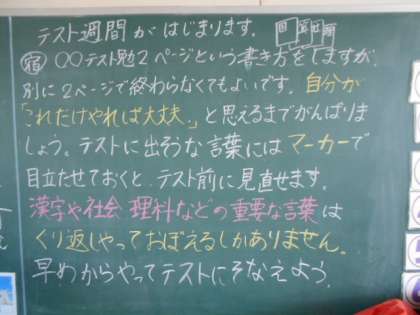 テスト週間がはじまります。
宿 ○○テスト勉2ページという書き方をしますが、
別に2ページで終わらなくてもよいです。自分が
「これだけやれば大丈夫。」と思えるまでがんばりま
しょう。テストに出そうな言葉にはマーカーで
目立たせておくと、テスト前に見直せます。
漢字や社会、理科などの重要な言葉は
くり返しやっておぼえるしかありません。
早めからやってテストにそなえよう。